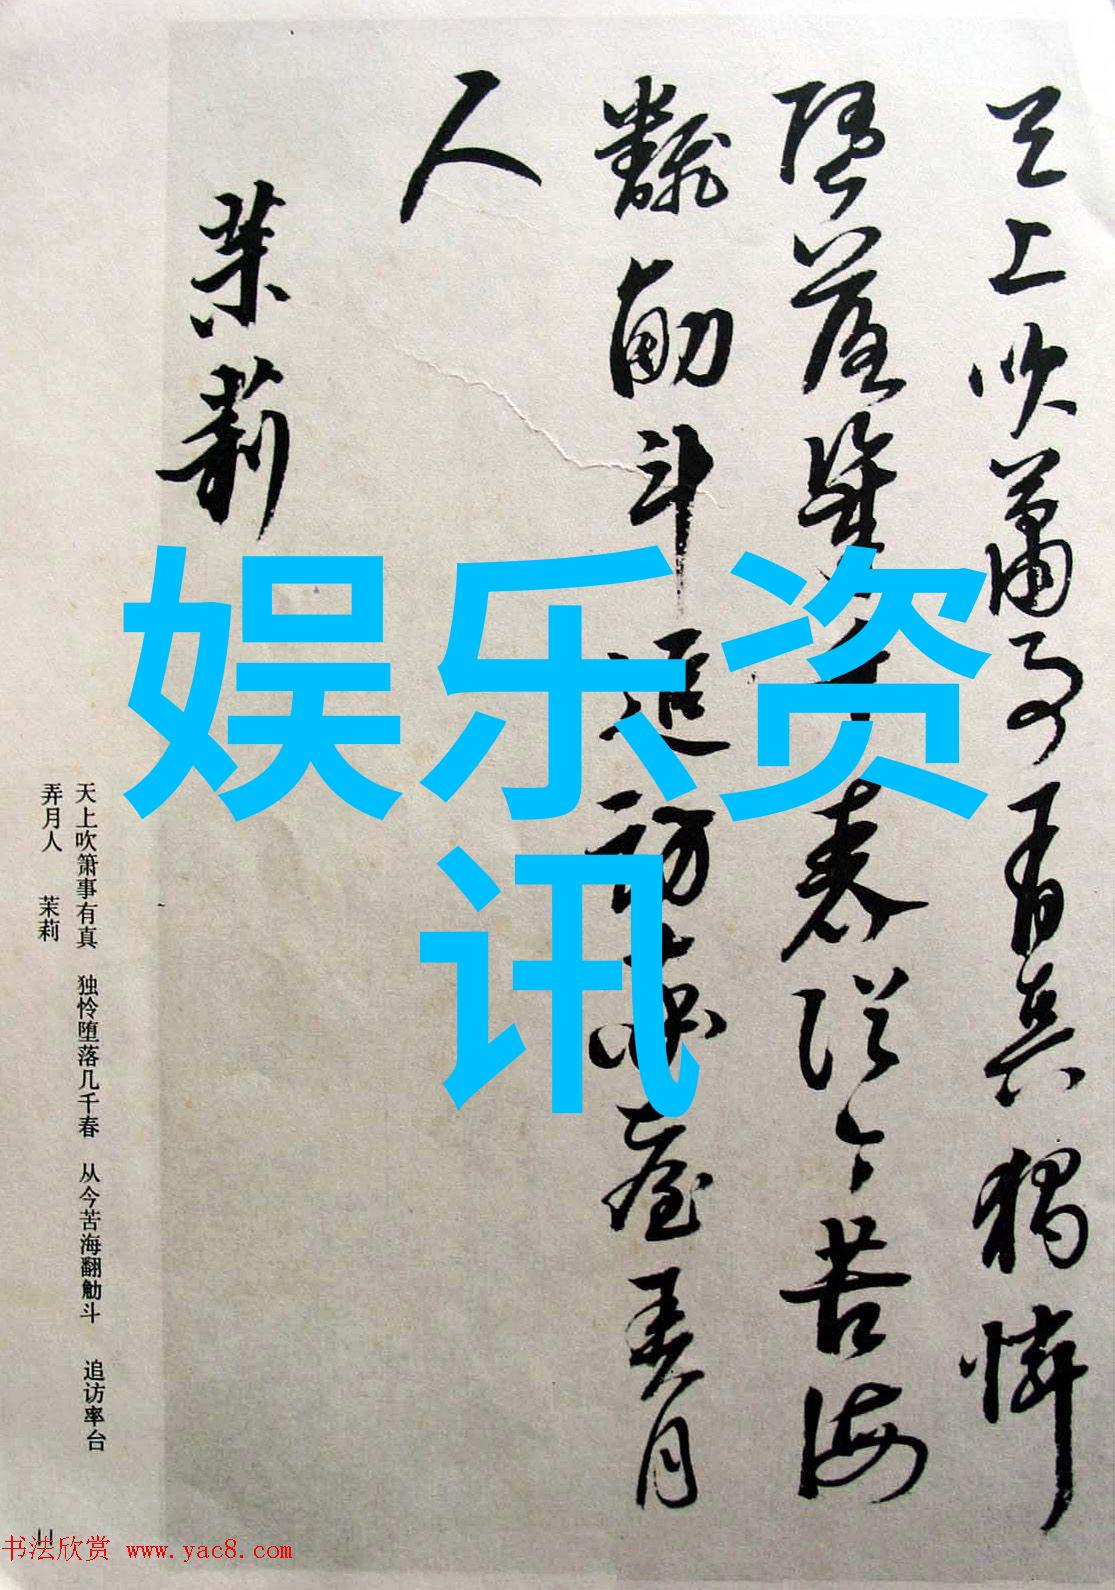 天上吹簫事有真獨憐
墮落幾千春從今苦海
翻觔斗追訪率臺弄月
人
茉莉
娱乐资
讯
天上吹箫事有真 独怜堕落几千春 从今苦海翻觔斗 追访率台
弄月人 茉莉
11
书法欣赏 www.yac8.com